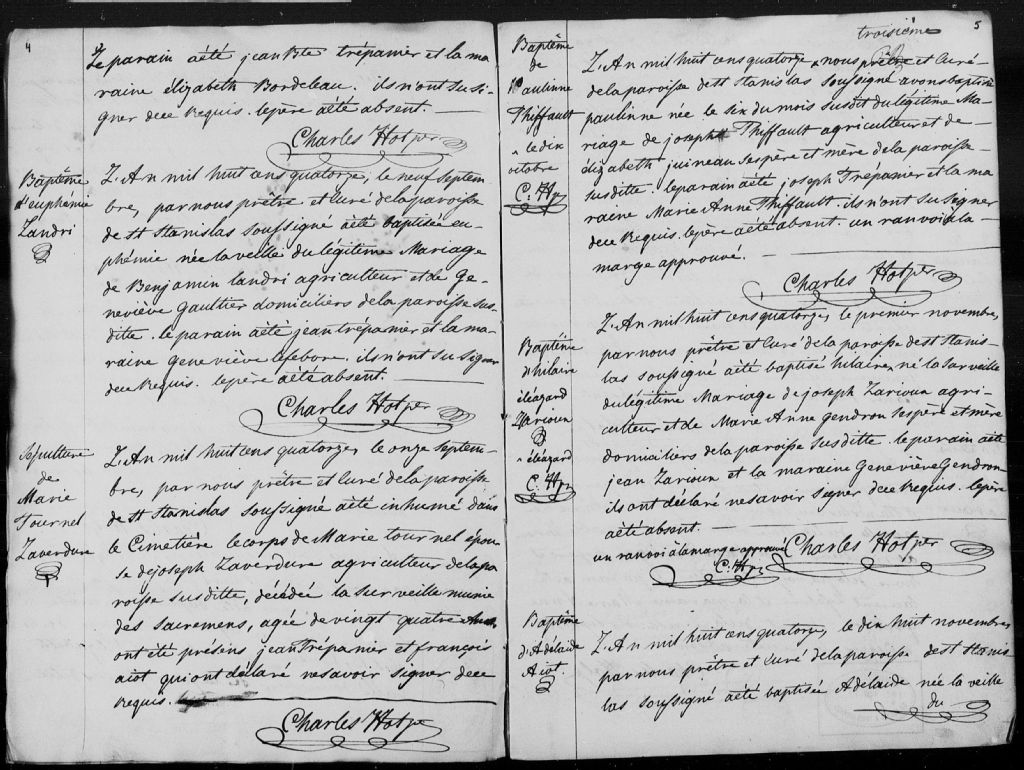 4
Le parain aété jean Bte trépanier et la ma
raine élizabeth Bordeleau. ils n'ont su si-
gner dece Requis. lepère aété absent.
Charles Hotper
Baptême
d'euphémie
Landri
L'An mil huit cens quatorze, le neuf septem-
bre, par nous prêtre et Curé delaparoisse
de St Stanislas soussigné aété baptisée eu-
phémie née laveille du légitime Mariage
de Benjamin landri agriculteur et de Ge-
neviève gaultier domiciliers delaparoisse sus-
ditte. leparain aété jean trépanier et lama-
raine geneviève lefebvre. ils n'ont su signer
dece Requis. lepère aété absent.
Charles Hotper
Sépulture
de
Marie
Tournel
Laverdure
L'An mil huit cens quatorze, le onze septem-
bre, par nous prêtre et Curé delaparoisse
de St Stanislas soussigné aété inhumé dans
le Cimetière lecorps de Marie tournel épou
se dejoseph Laverdure agriculteur delapa
roisse susditte, décédée la surveille munie
des sacremens, agée de vingt quatre Ans
ont été présens jean trépanier et françois
aiot qui ont déclaré nesavoir signer dece
Requis.
Charles Hotper
troisième
5
Baptême
de
Paulinne
Thiffault
le dix
octobre
C. H. ptr
L'An mil huit cens quatorze, nous prêtre et Curé
delaparoisse de St Stanislas soussigné avons baptisé
paulinne née le six du mois susdit du légitime Ma-
riage de joseph Thiffault agriculteur et de-
élizabeth juineau sespère et mère delaparoisse
susditte. leparain aété joseph Trépanier et lama
raine Marie Anne Thiffault. ils n'ont su signer
dece Requis. lepère aété absent. un ranvoi àla-
marge approuvé.
Charles Hotper
Baptême
d'hilaire
éléazard
Larioux
éléazard
C. H. ptr
L'An mil huit cens quatorze, le premier novembre,
par nous prêtre et Curé delaparoisse de St Stanis-
las soussigné aété baptisé hilaire, né la surveille
du légitime Mariage de joseph Larioux agri-
culteur et de Marie Anne gendron sespère et mère
domiciliers delaparoisse susditte. leparain aété
jean Larioux et la maraine Geneviève Gendron
ils ont déclaré nesavoir signer dece Requis. lepère
aété absent.
un ranvoi àlamarge approuvé
C. H. ptr
Charles Hotper
Baptême
d'Adélaide
Aiot.
L'An mil huit cens quatorze, le dix huit novembre,
par nous prêtre et Curé delaparoisse de St Stanis-
las soussigné aété baptisée Adélaide née la veille
du